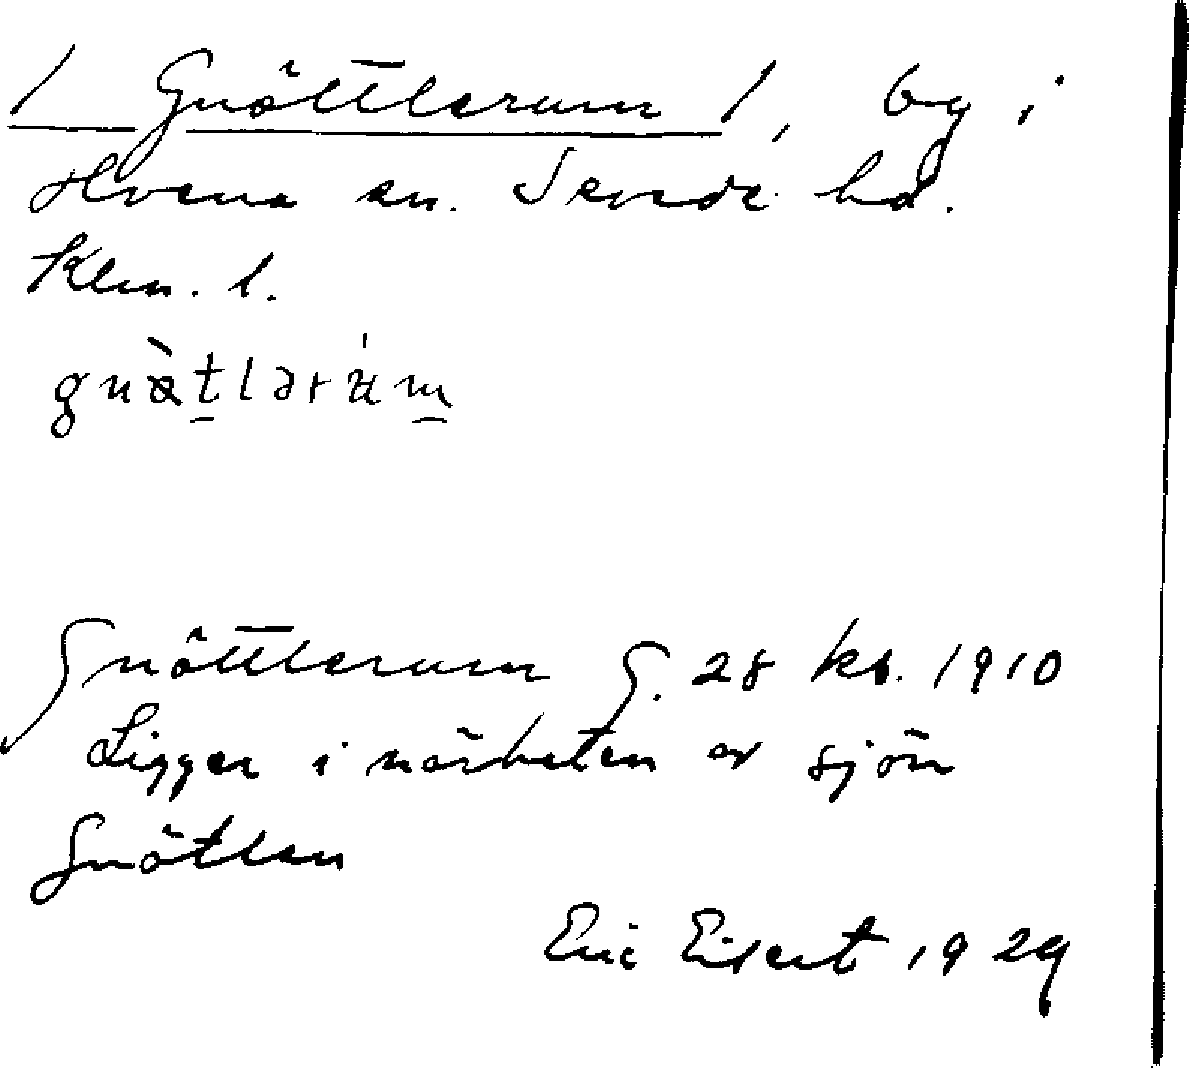 / Gnöttlerum /, by i
Hvena sn. Sevede hd.
Klm. l.
gnätlərum
Gnöttlerum G. 28 kb. 1910
Ligger i närheten av sjön
Gnötlen
Eric Eilert 1929